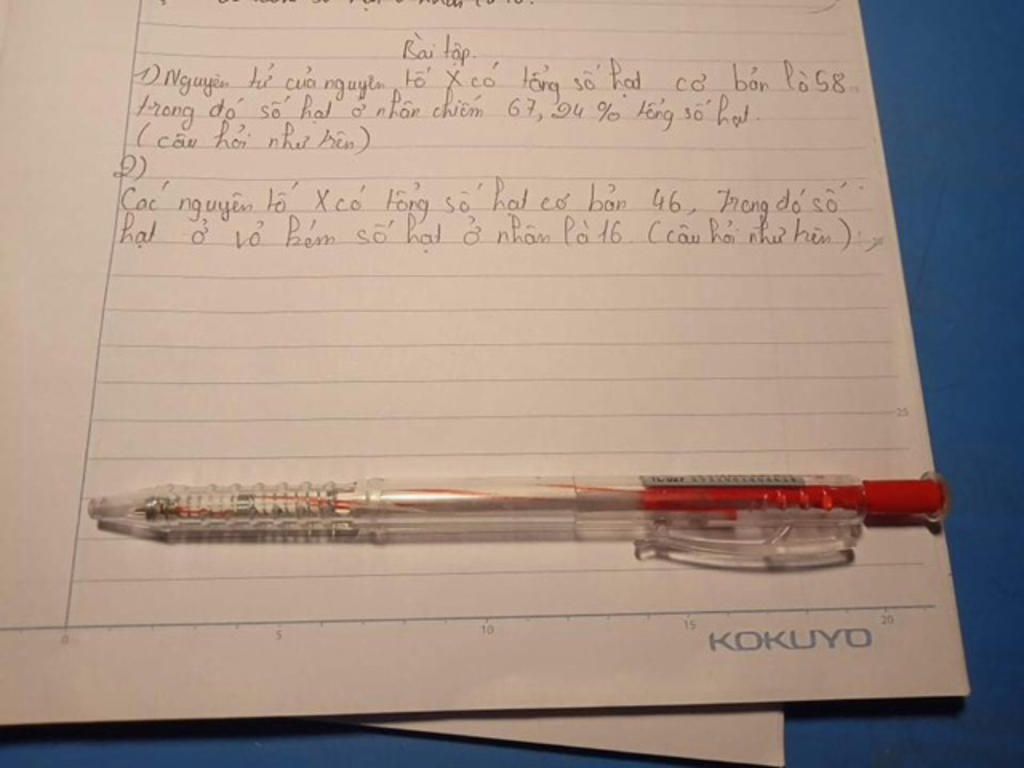 Bài tập.
1) Nguyên tử của nguyên tố X có tổng số hạt cơ bản là 58.
trong đó số hạt ở nhân chiếm 67,24% tổng số hạt.
(câu hỏi như trên)
2)
Các nguyên tố X có tổng số hạt cơ bản 46, Trong đó số
hạt ở vỏ kém số hạt ở nhân là 16. (câu hỏi như trên).
25
0 5 10 15 20
KOKUYO